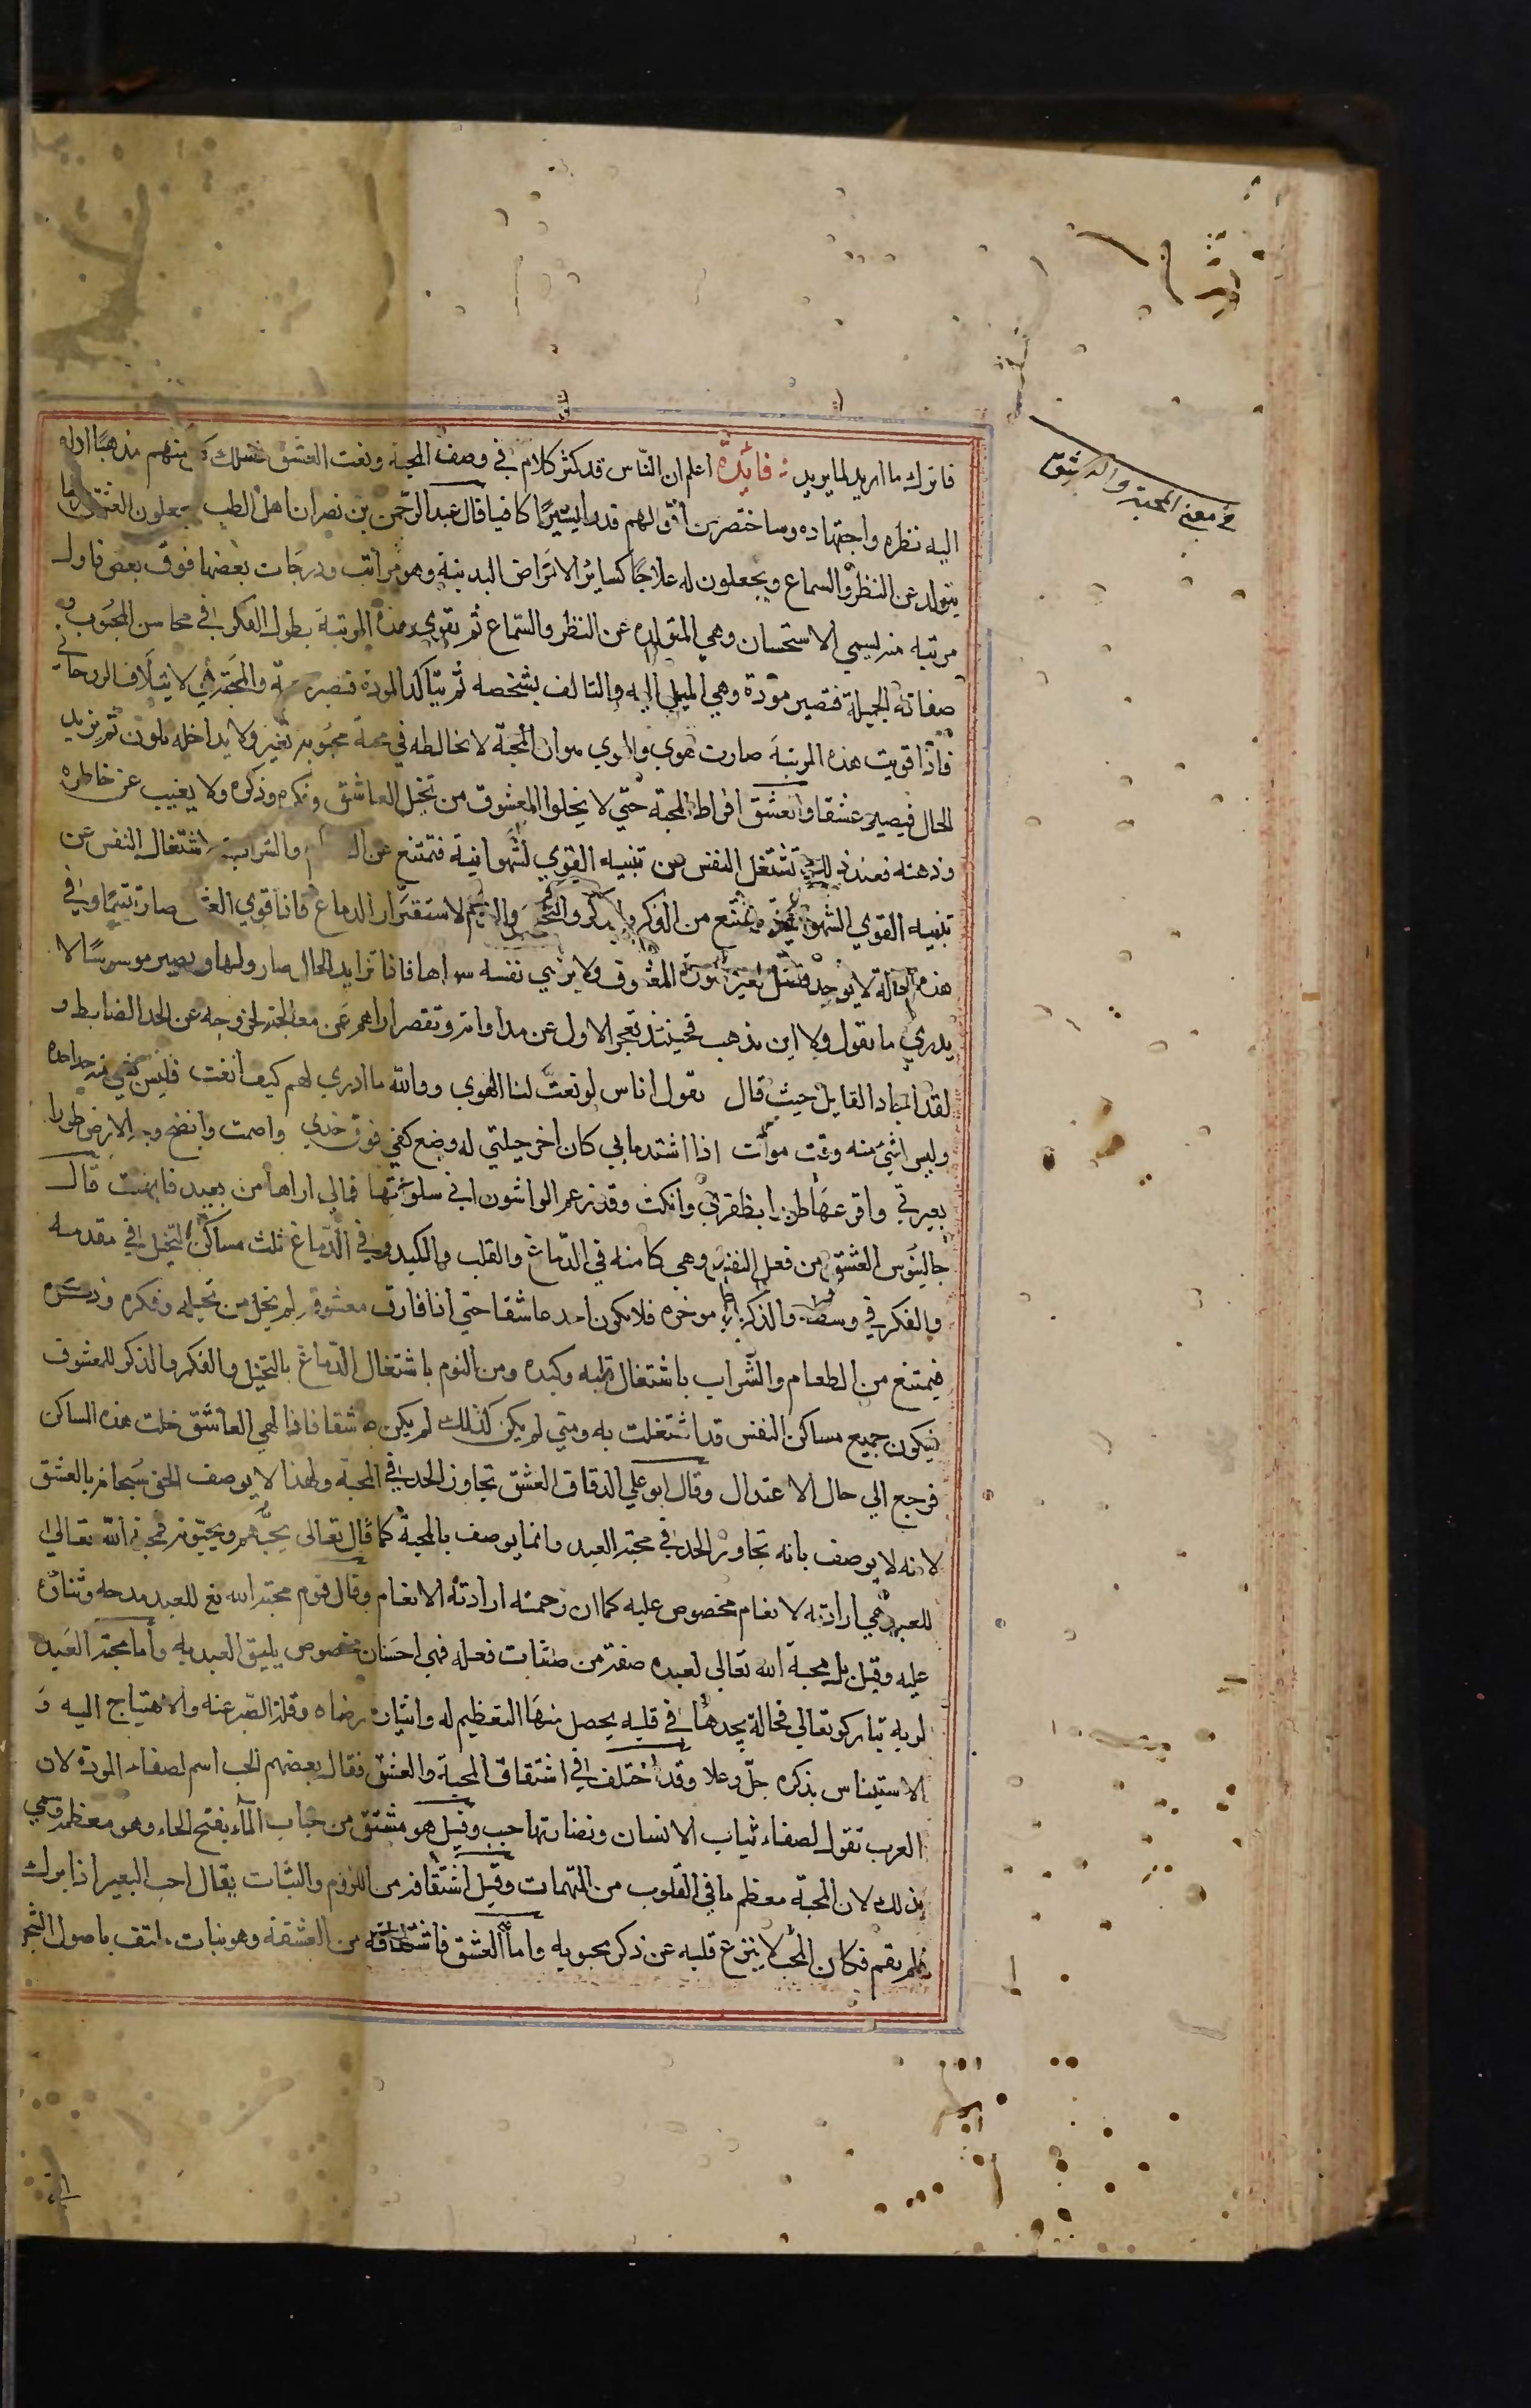 في معنى المحبة والعشق
فاترك ما اريد لما يريد فائدة اعلم ان الناس قد كثر كلامهم في وصف المحبة ونعت العشق فسلك كل منهم مذهبا اداه
اليه نظره واجتهاده وساختصر من اقوالهم قدرا يسيرا كافيا قال عبد الرحمن بن نصر ان اهل الطب يجعلون العشق مرضا
يتولد عن النظر والسماع ويجعلون له علاجا كساير الامراض البدنية وهو مراتب ودرجات بعضها فوق بعض فاول
مرتبه منه تسمي الاستحسان وهي المتولده عن النظر والسماع ثم تقوي هذه المرتبة بطول الفكر في محاسن المحبوب و
صفاته الجميلة فتصير مودة وهي الميل اليه والتالف بشخصه ثم يتاكد المودة فتصير محبة والمحبة هي الايتلاف الروحاني
فاذا قويت هذه المرتبة صارت هوي والهوي هو ان المحبة لا تخالطه في محبة محبوبه تغير ولا يداخله تلون ثم يزيد
الحال فيصير عشقا والعشق افراط المحبة حتي لا يخلوا المعشوق من تخيل العاشق وفكره وذكره ولا يغيب عن خاطره
وذهنه فعند ذلك تشتغل النفس عن تنبيه القوي الشهوانية فتمتنع عن الـ والشراب لاشتغال النفس عن
تنبيه القوي الشهوانية ويمتنع من الفكر والذكر والتخيل والنوم لاستقرار الدماغ فاذا قوي العشق صار تتيما وفي
هذه الحالة لا يوجد فيه لغير صورة المعشوق ولا يرضي نفسه سواها فاذا تزايد الحال صار ولها ويصير موسوسا لا
يدري ما يقول ولا اين يذهب فحينئذ تعجز الاول عن مداواته وتقصر اراهم عن معالجته لخروجه عن الحد الضابط و
لقد اجاد القايل حيث قال يقول اناس لو نعت لنا الهوي ووالله ما ادري لهم كيف انعت فليس لشي منه حد احده
وليس لشي منه وقت موقت اذا اشتد ما بي كان اخر حيلتي له وضع كفي فوق خدي واصمت وانضح وجه الارض طورا
بعبرتي واقرعها طورا بظفري وانكت وقد زعم الواشون اني سلوتها فمالي اراها من بعيد فابهت قال
جالينوس العشق من فعل النفس وهي كامنه في الدماغ والقلب والكبد وفي الدماغ ثلث مساكن التخيل في مقدمه
والفكر في وسطه والذكر في موخره فلا يكون احد عاشقا حتي اذا فارق معشوقه لم يخل من تخيله وفكره وذكره
فيمتنع من الطعام والشراب باشتغال قلبه وكبده ومن النوم باشتغال الدماغ بالتخيل والفكر والذكر للمعشوق
فيكون جميع مساكن النفس قد اشتغلت به ومتي لم يكن كذلك لم يكن عاشقا فاذا لهي العاشق خلت هذه المساكن
فرجع الي حال الاعتدال وقال ابو علي الدقاق العشق تجاوز الحد في المحبة ولهذا لا يوصف الحق سبحانه بالعشق
لانه لا يوصف بانه تجاوز الحد في محبة العبد وانما يوصف بالمحبة كما قال تعالى يحبهم ويحبونه فمحبة الله تعالى
للعبد هي ارادته لانعام مخصوص عليه كما ان رحمته ارادته الانعام وقال قوم محبة الله تع للعبد مدحه وثناؤه
عليه وقيل بل محبة الله تعالي لعبده صفة من صفات فعله فهي احسان مخصوص يليق العبد به واما محبة العبد
لربه تبارك وتعالي فحالة يجدها في قلبه يحصل منها التعظيم له وايثار رضاه وقلة الصبر عنه والاهتياج اليه و
الاستيناس بذكره جل وعلا وقد اختلف في اشتقاق المحبة والعشق فقال بعضهم الحب اسم لصفاء المودة لان
العرب تقول لصفاء ثياب الانسان ونضارتها حبب وقيل هو مشتق من حباب الماء بفتح الحاء وهو معظمه وسمي
بذلك لان المحبة معظم ما في القلوب من المهمات وقيل اشتقاقه من اللزوم والثبات يقال احب البعير اذا برك
فلم يقم فكان المحب لا ينزع قلبه عن ذكر محبوبه واما العشق فاشتقاقه من العشقة وهو نبات يلتف باصول الشجر